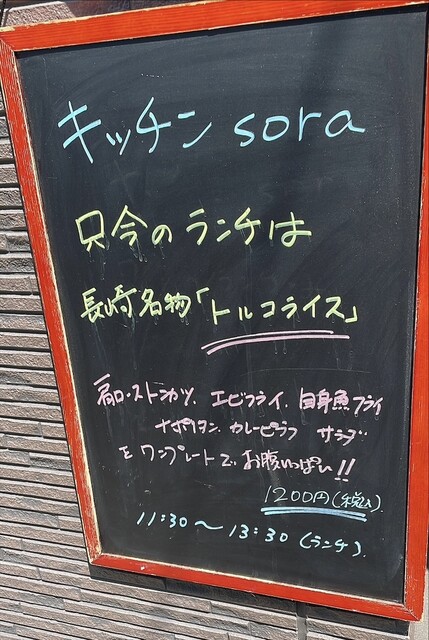 キッチン sora
只今のランチは
長崎名物「トルコライス」
肩ローストンカツ、エビフライ、白身魚フライ
ナポリタン、カレーピラフ サラダ
を ワンプレートで、お腹いっぱい!!
1200円(税込)
11:30〜13:30(ランチ)